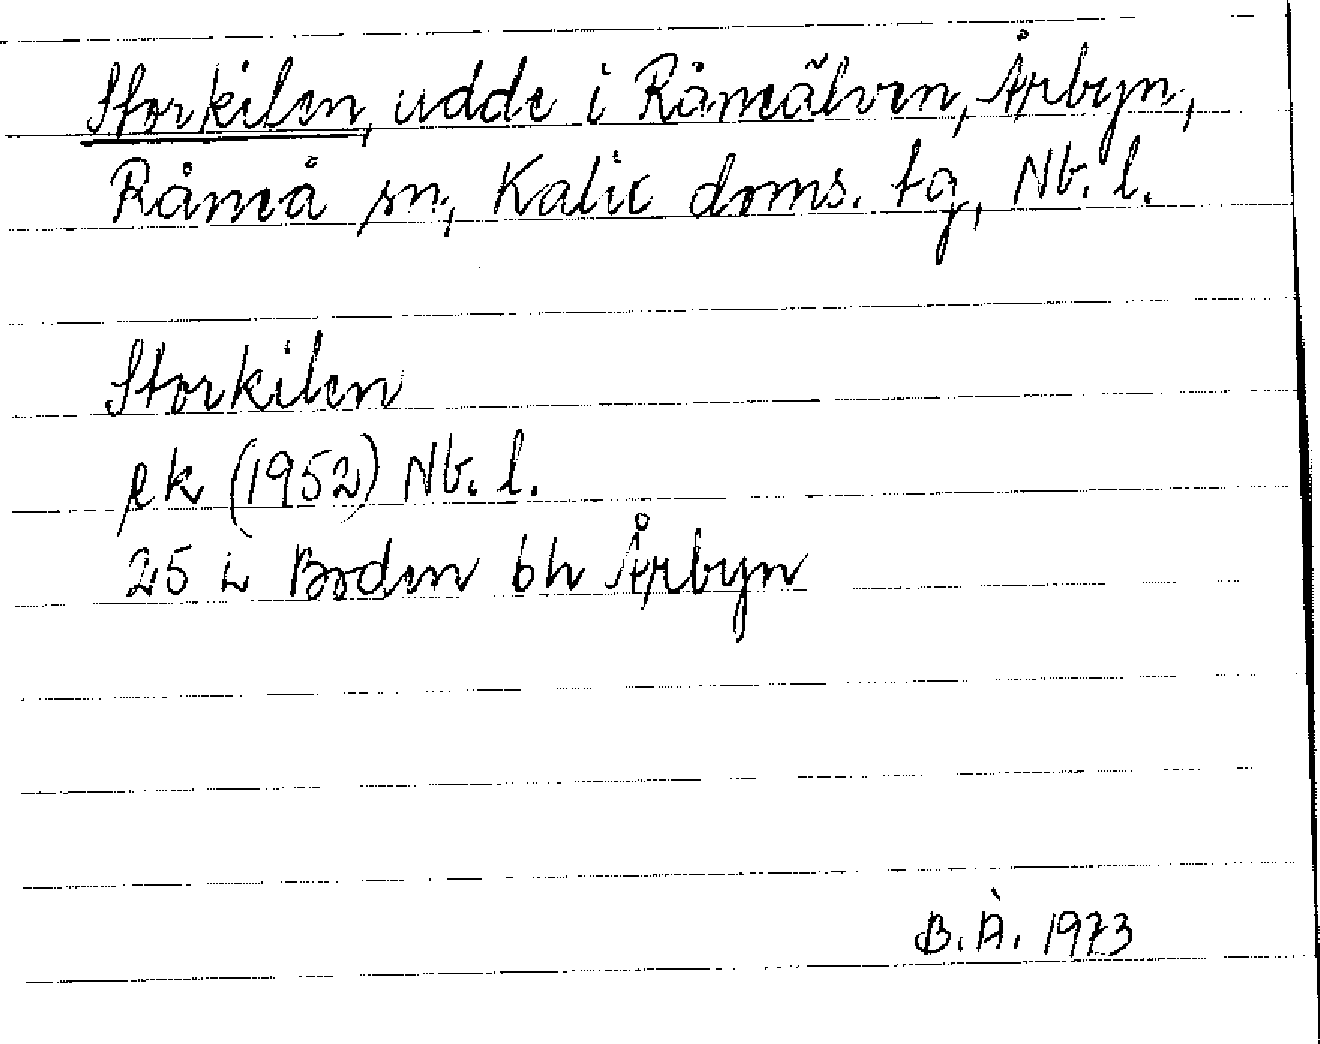 Storkilen, udde i Råneälven, Årbyn,
Råneå sn, Kalix doms. tg, Nb. l.
Storkilen
ek (1952) Nb. l.
25 L Boden 6h Årbyn
B.Å. 1973